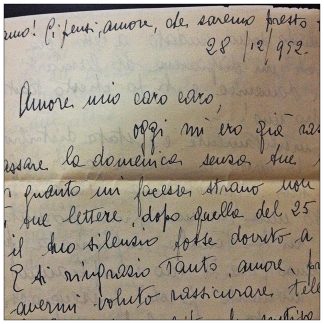 amo! Ci pensi, amore, che saremo presto
28/12/952.
Amore mio caro caro,
oggi mi ero già ras
assare la domenica senza tue
quanto mi facesse strano non
tue lettere, dopo quella del 25
il tuo silenzio fosse dovuto a
E ti ringrazio tanto, amore, p
avermi voluto rassicurare tele